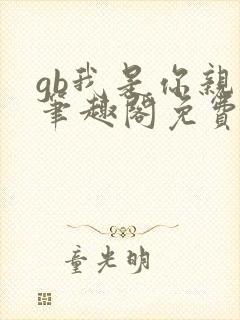 gb我是你親
筆趣閣免費
童光明